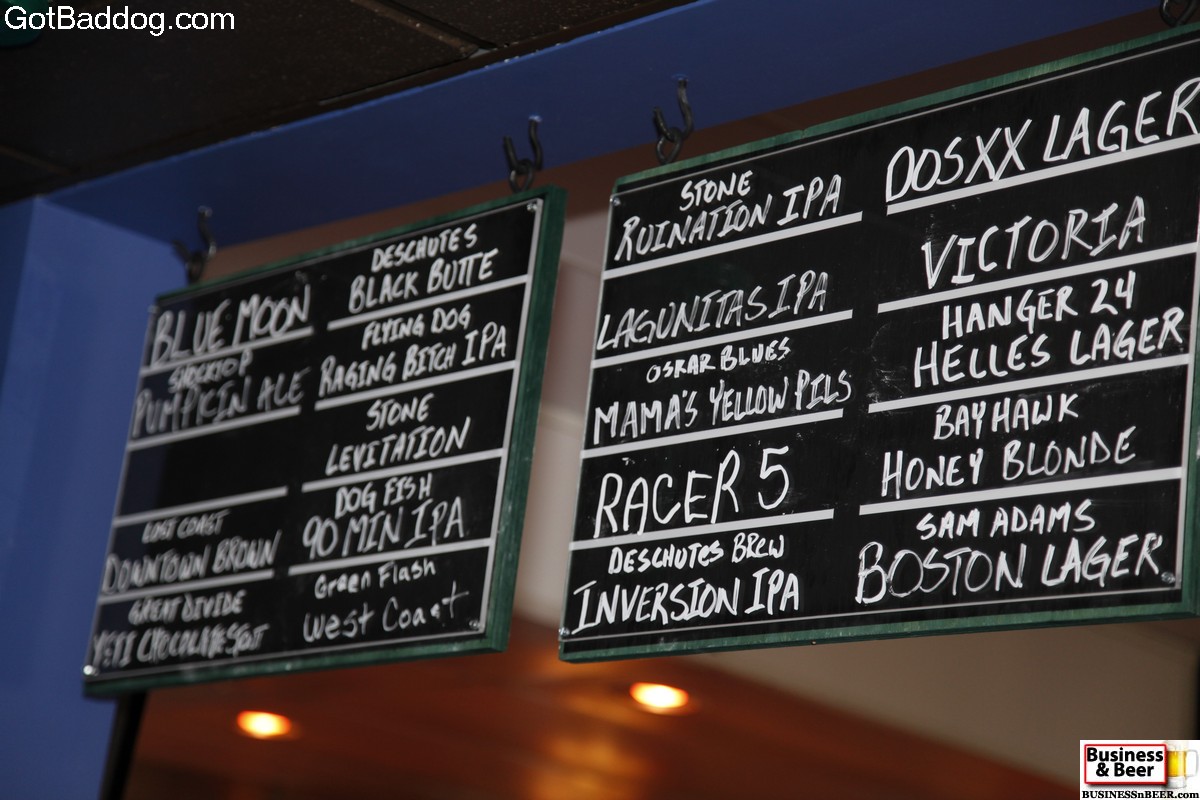 GotBaddog.com
BLUE MOON
SHOCKTOP
PUMPKIN ALE
LOST COAST
DOWNTOWN BROWN
GREAT DIVIDE
YETI CHOCOLATE
DESCHUTES
BLACK BUTTE
FLYING DOG
RAGING BITCH IPA
STONE
LEVITATION
DOG FISH
90 MIN IPA
Green Flash
West Coast
STONE
RUINATION IPA
LAGUNITAS IPA
OSKAR BLUES
MAMA'S YELLOW PILS
RACER 5
DESCHUTES BREW
INVERSION IPA
DOSXX LAGER
VICTORIA
HANGER 24
HELLES LAGER
BAYHAWK
HONEY BLONDE
SAM ADAMS
BOSTON LAGER
Business
& Beer
BUSINESSnBEER.com